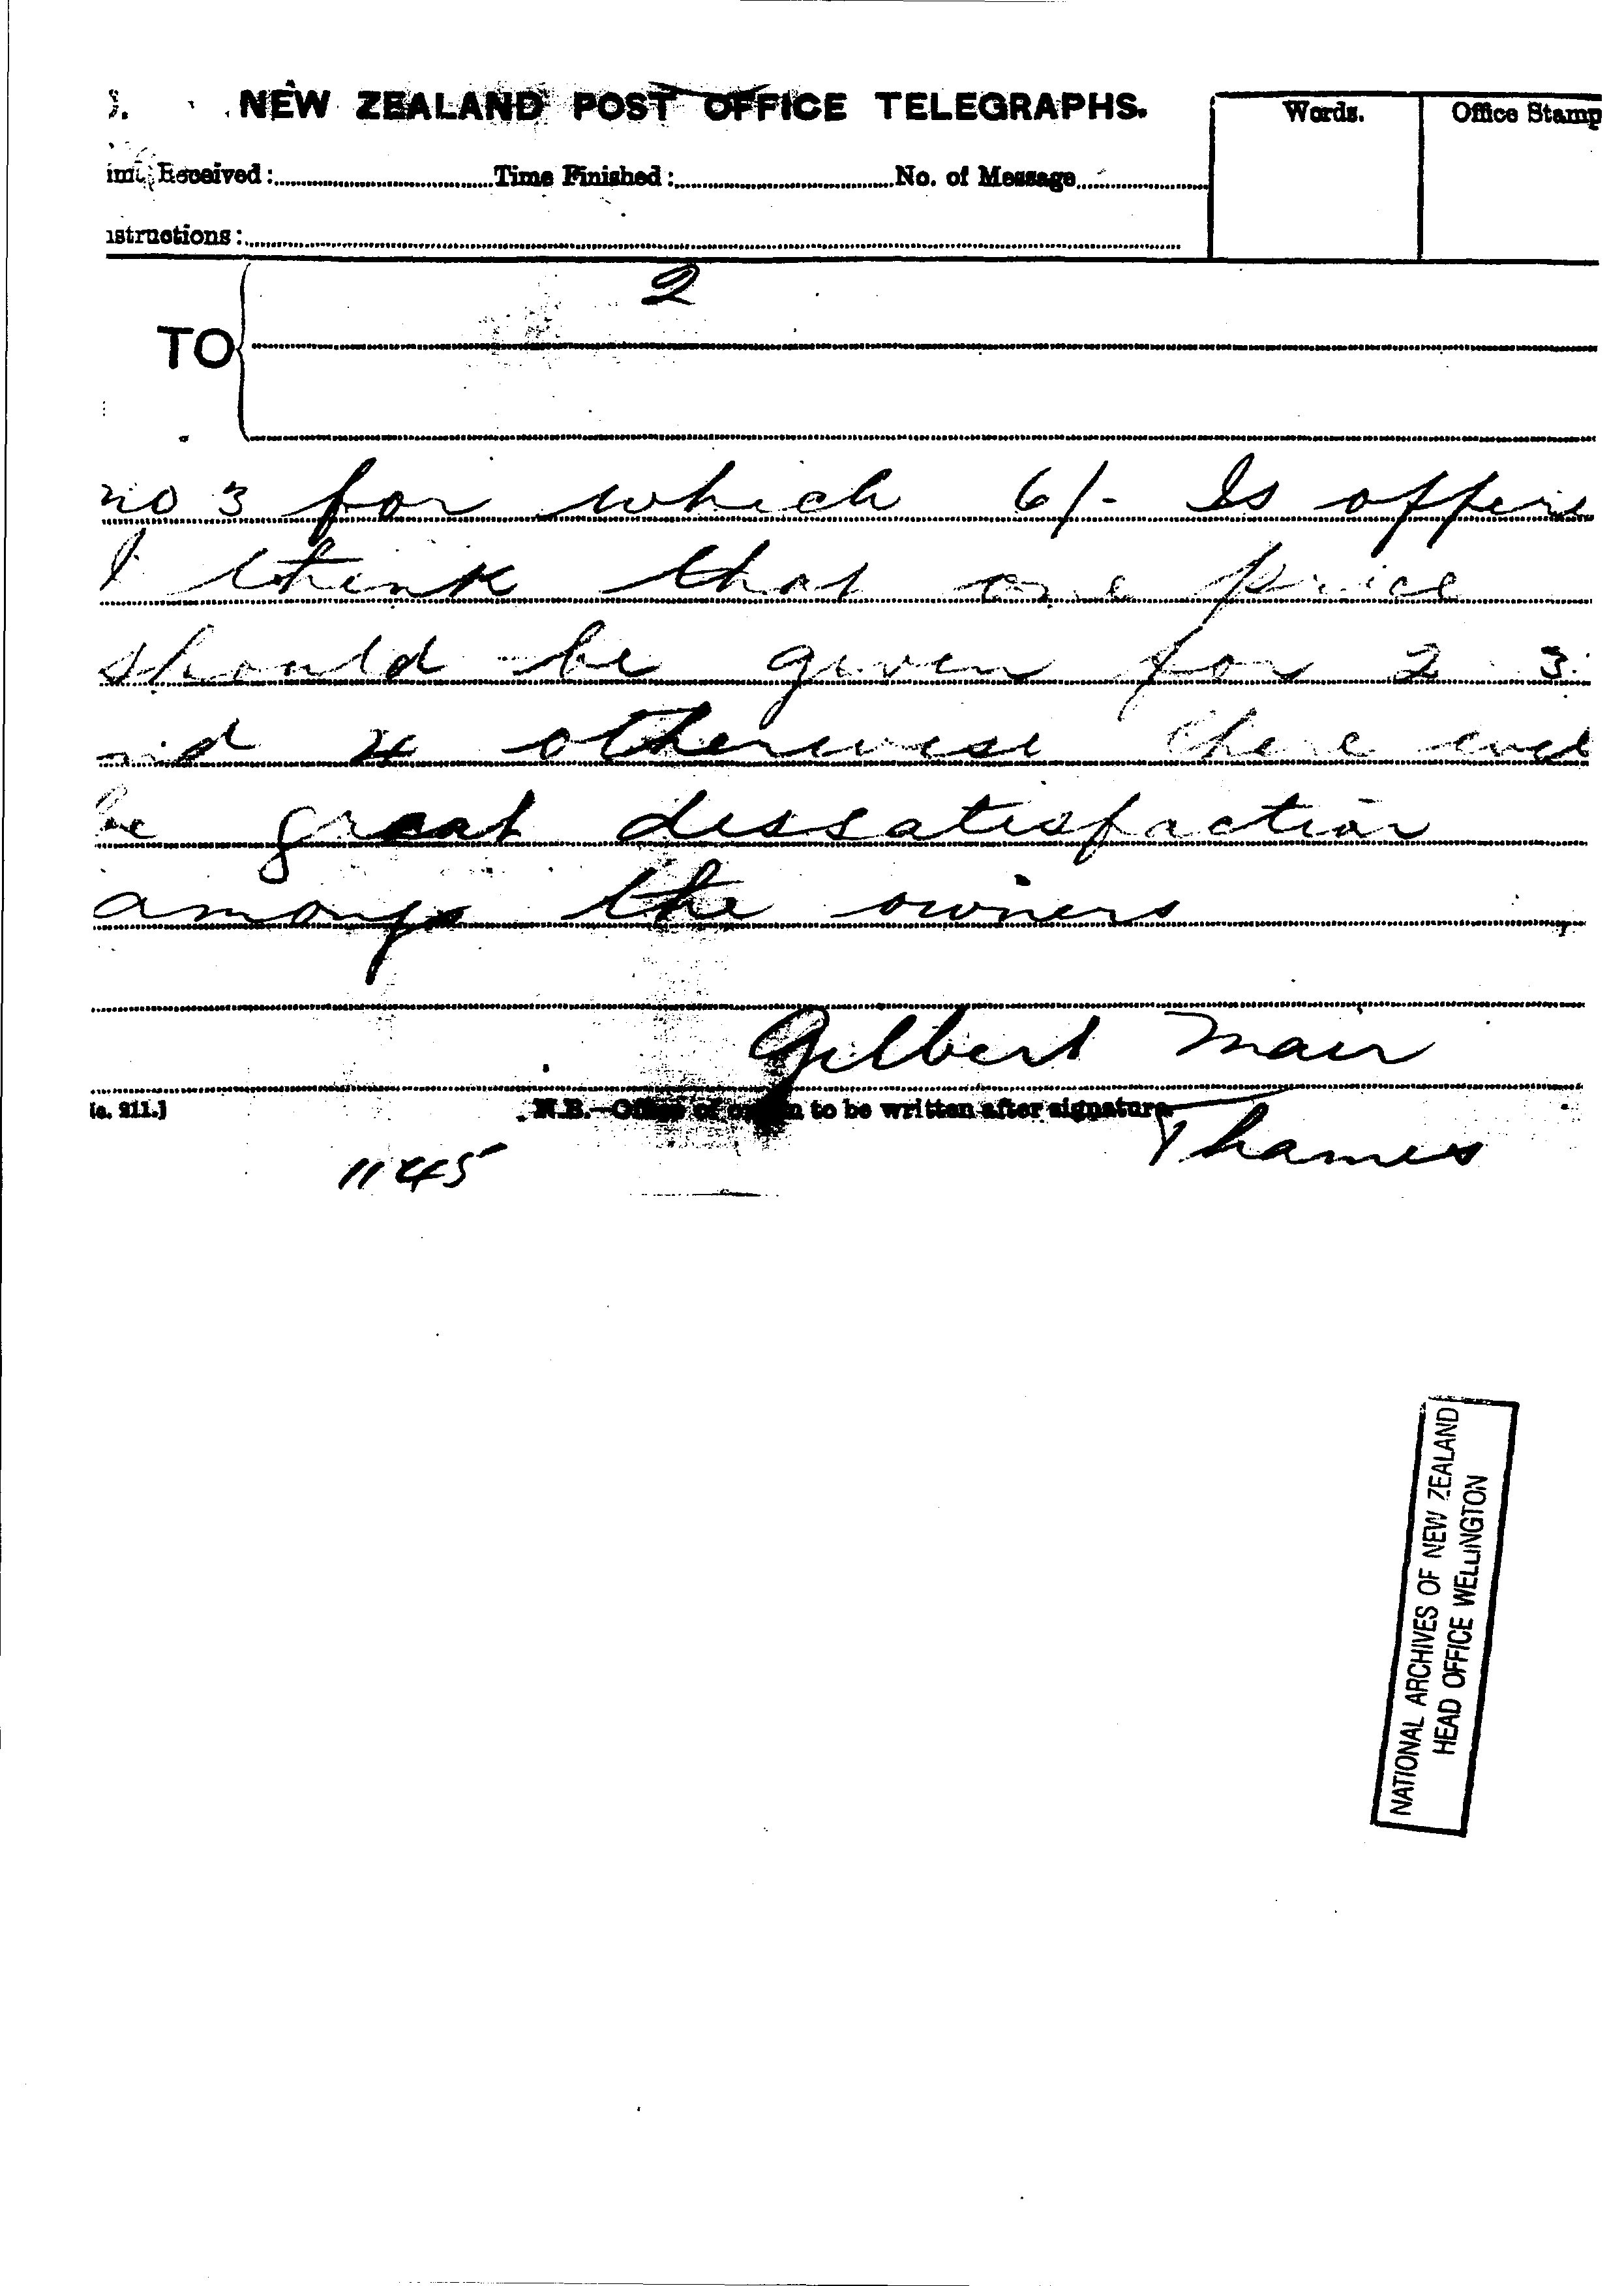 NEW ZEALAND POST OFFICE TELEGRAPHS.
Words.
Office Stamp
Received: Time Finished: No. of Message
structions:
2
TO
no 3 for which 6/- Is offere
I think that one price
should be given for 2 3
nd 4 otherwise there will
be great dissatisfaction
amongs the owners
Gilbert Mair
N.B.—Office of origin to be written after signature
Thames
1145
NATIONAL ARCHIVES OF NEW ZEALAND
HEAD OFFICE WELLINGTON